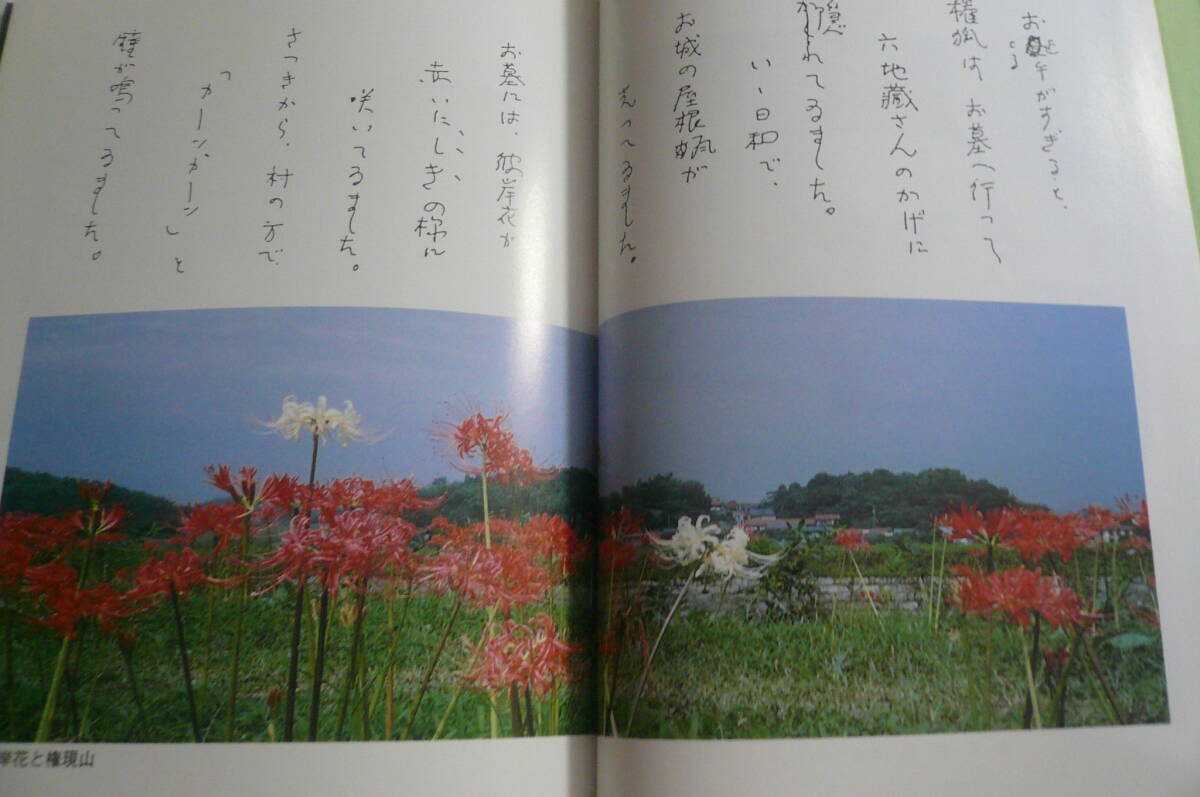 お午がすぎると、
権狐は、お墓へ行って
六地藏さんのかげに
隠れてゐました。
いゝ日和で、
お城の屋根瓦が
光ってゐました。
お墓には、彼岸花が
赤いにしきの様に
咲いてゐました。
さっきから、村の方で
「カーンカーン」と
鐘が鳴ってゐました。
岸花と権現山